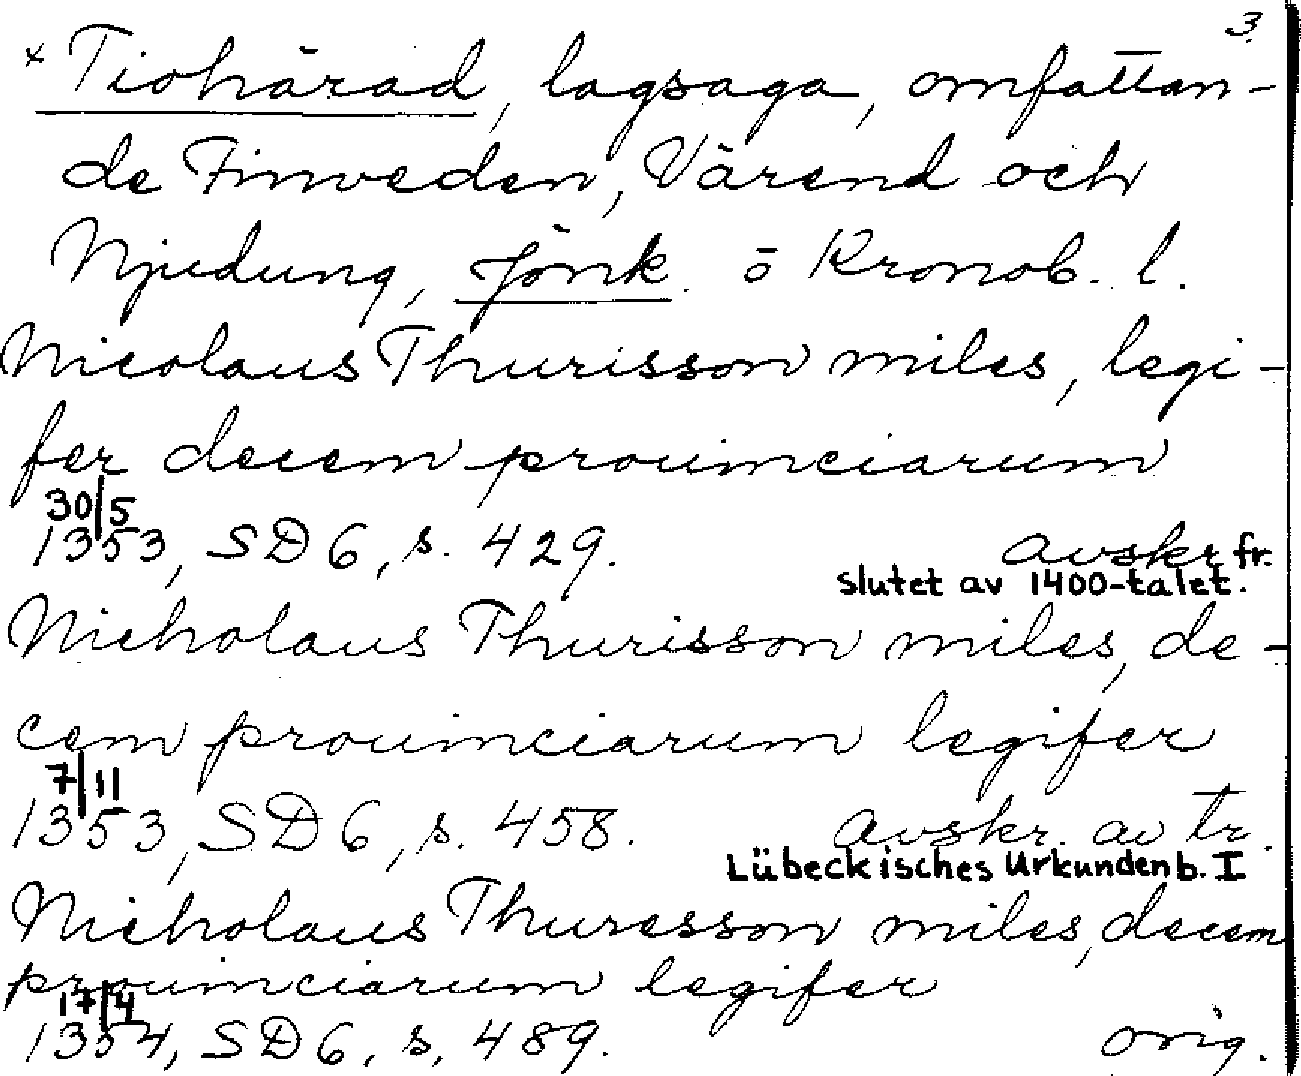 3.
× Tiohärad, lagsaga, omfattan-
de Finveden, Värend och
Njudung, Jönk. o Kronob. l.
Nicolaus Thurisson miles, legi-
fer decem prouinciarum
30/5
1353, SD 6, s. 429. avskr. fr.
slutet av 1400-talet.
Nicholaus Thurisson miles, de-
cem prouinciarum legifer
7/11
1353, SD 6, s. 458. avskr. av tr.
Lübeckisches Urkundenb. I
Nicholaus Thuresson miles, decem
prouinciarum legifer
17/4
1354, SD 6, s. 489. orig.